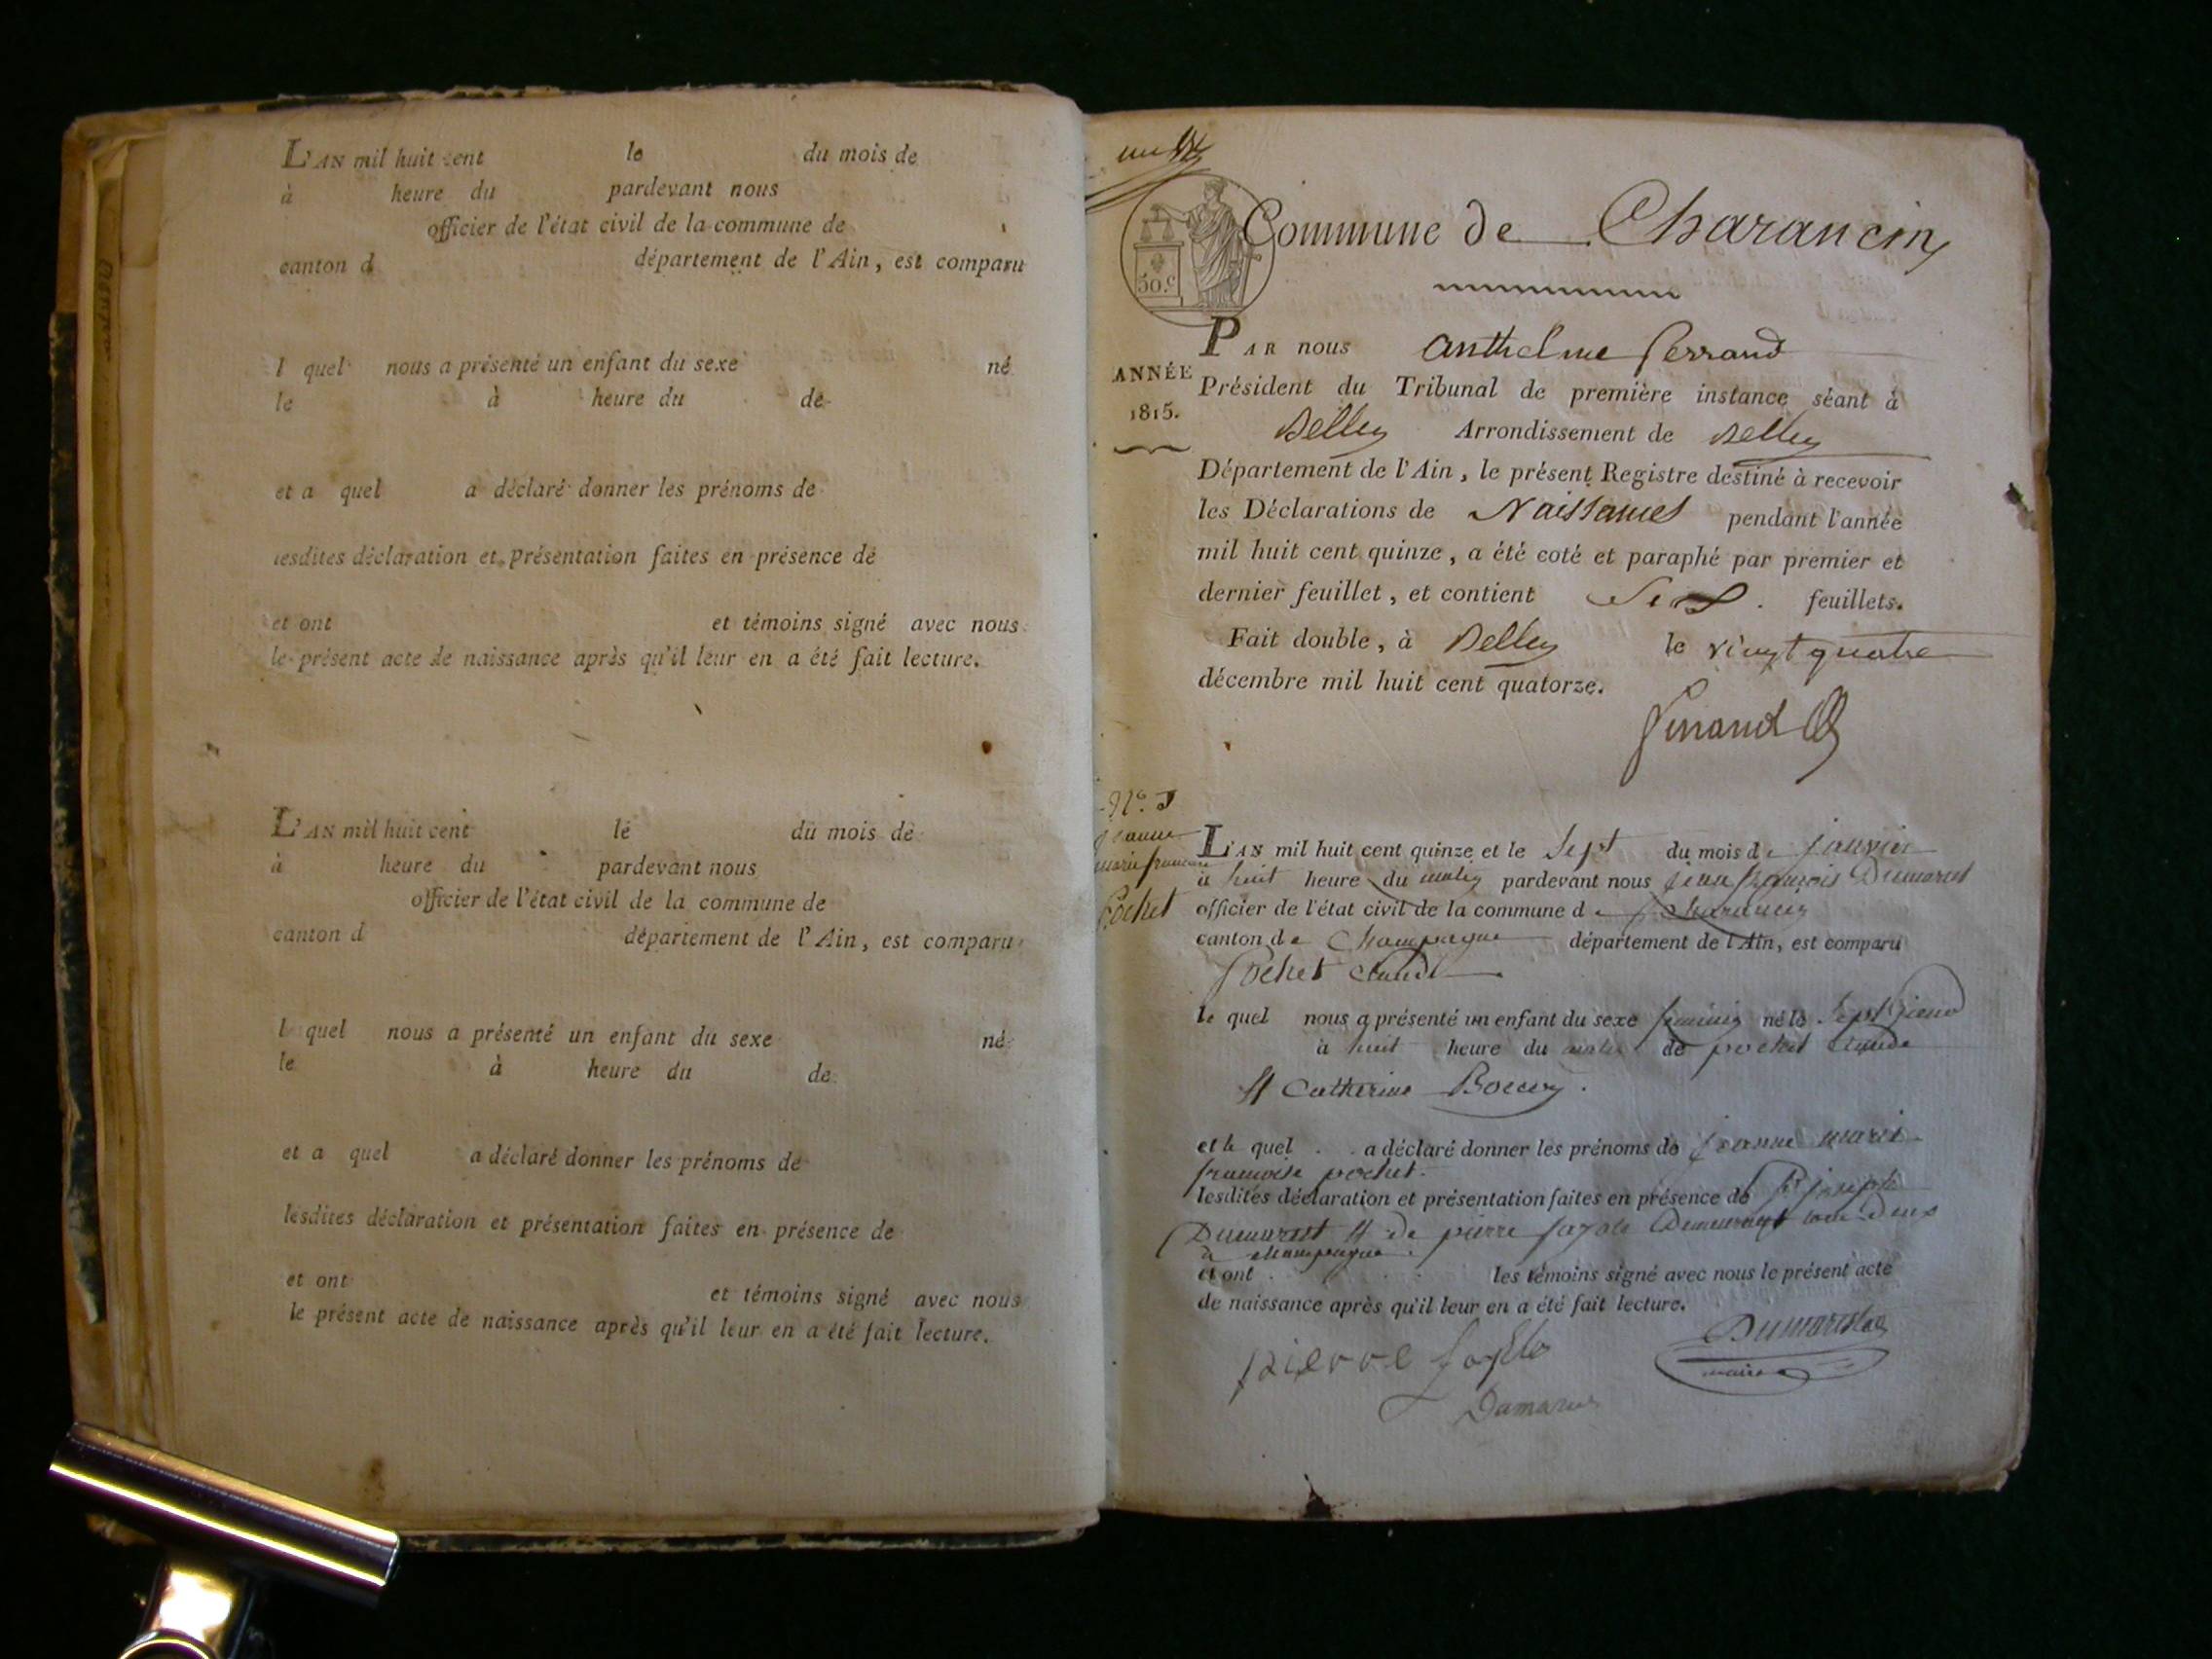 L'AN mil huit cent le du mois de
à heure du pardevant nous
officier de l'état civil de la commune de
canton d département de l'Ain, est comparu
l quel nous a présenté un enfant du sexe né
le à heure du de
et a quel a déclaré donner les prénoms de
lesdites déclaration et présentation faites en présence de
et ont et témoins signé avec nous
le présent acte de naissance après qu'il leur en a été fait lecture.
L'AN mil huit cent le du mois de
à heure du pardevant nous
officier de l'état civil de la commune de
canton d département de l'Ain, est comparu
l quel nous a présenté un enfant du sexe né
le à heure du de
et a quel a déclaré donner les prénoms de
lesdites déclaration et présentation faites en présence de
et ont et témoins signé avec nous
le présent acte de naissance après qu'il leur en a été fait lecture.
Commune de Charancin
50.c
PAR nous Anthelme ferrand
ANNÉE
1815.
Président du Tribunal de première instance séant à
Belley Arrondissement de Belley
Département de l'Ain, le présent Registre destiné à recevoir
les Déclarations de Naissances pendant l'année
mil huit cent quinze, a été coté et paraphé par premier et
dernier feuillet, et contient Six feuillets.
Fait double, à Belley le vingt quatre
décembre mil huit cent quatorze.
ferrand
jeanne
marie francoise
Pochet
L'AN mil huit cent quinze et le Sept du mois de janvier
à huit heure du matin pardevant nous jean françois Dumarest
officier de l'état civil de la commune de Charancin
canton de Champagne département de l'Ain, est comparu
pochet Claude
le quel nous a présenté un enfant du sexe feminin né le Sept
à huit heure du matin de pochet Claude
et Catherine
et le quel a déclaré donner les prénoms de jeanne marie
francoise pochet.
lesdites déclaration et présentation faites en présence de joseph
Dumarest et de pierre demeurant tous deux
à champagne.
et ont les témoins signé avec nous le présent acte
de naissance après qu'il leur en a été fait lecture.
pierre Dumarest
maire